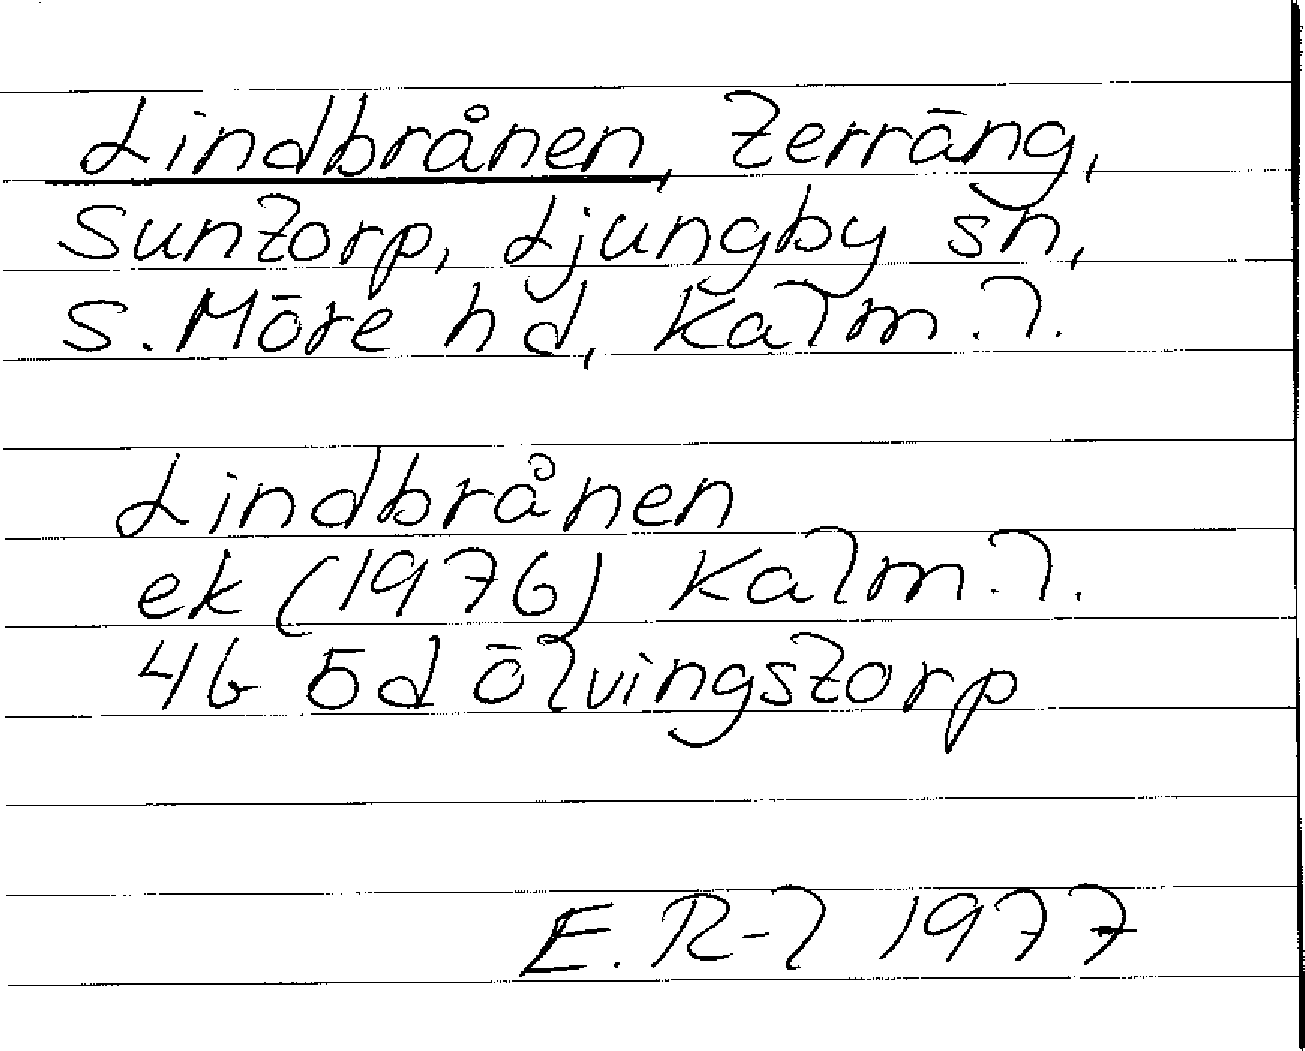 Lindbrånen, Terräng,
Suntorp, Ljungby sn,
S. Möre hd, Kalm. l.
Lindbrånen
ek (1976) Kalm. l.
4G 5d Ölvingstorp
E. R-l 1977